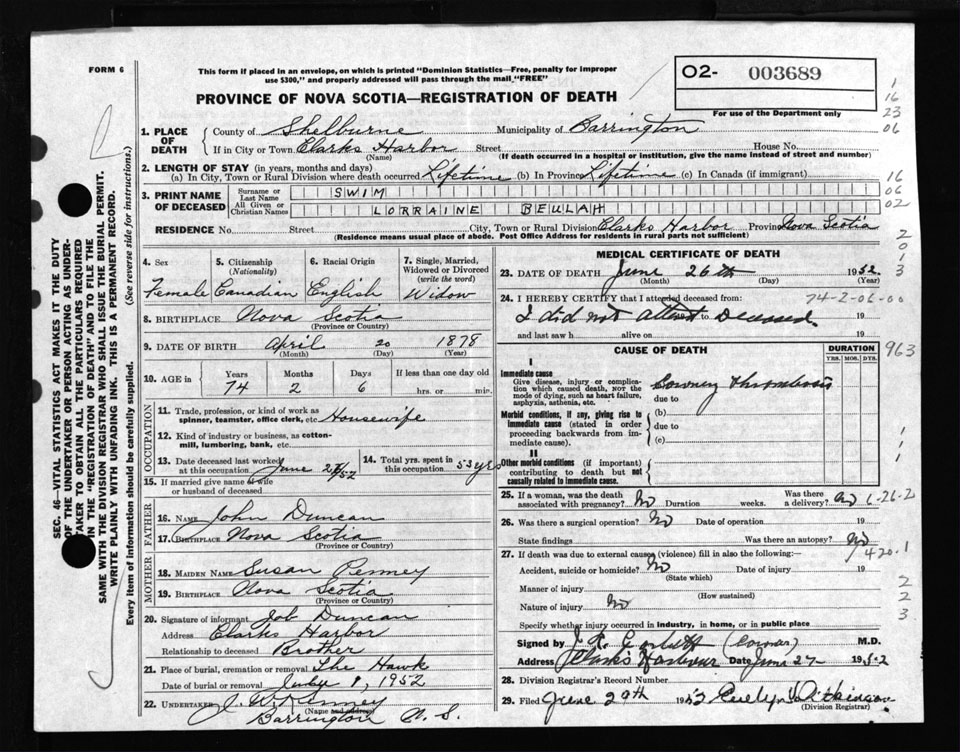 FORM 6
This form if placed in an envelope, on which is printed "Dominion Statistics—Free, penalty for improper
use $300," and properly addressed will pass through the mail "FREE"
O2- 003689
PROVINCE OF NOVA SCOTIA—REGISTRATION OF DEATH
For use of the Department only
1
16
23
06
1. PLACE OF DEATH { County of Shelburne Municipality of Barrington
If in City or Town Clarks Harbor Street House No.
(Name) (If death occurred in a hospital or institution, give the name instead of street and number)
2. LENGTH OF STAY (in years, months and days)
(a) In City, Town or Rural Division where death occurred Lifetime (b) In Province Lifetime (c) In Canada (if immigrant) 16
3. PRINT NAME OF DECEASED { Surname or Last Name SWIM 06
All Given or Christian Names LORRAINE BEULAH 02
RESIDENCE No. Street City, Town or Rural Division Clarks Harbor Province Nova Scotia
(Residence means usual place of abode. Post Office Address for residents in rural parts not sufficient)
2
0
1
3
SEC. 46—VITAL STATISTICS ACT MAKES IT THE DUTY
OF THE UNDERTAKER OR PERSON ACTING AS UNDER-
TAKER TO OBTAIN ALL THE PARTICULARS REQUIRED
IN THE "REGISTRATION OF DEATH" AND TO FILE THE
SAME WITH THE DIVISION REGISTRAR WHO SHALL ISSUE THE BURIAL PERMIT.
WRITE PLAINLY WITH UNFADING INK. THIS IS A PERMANENT RECORD.
Every item of information should be carefully supplied. (See reverse side for instructions.)
4. Sex 5. Citizenship (Nationality) 6. Racial Origin 7. Single, Married, Widowed or Divorced (write the word)
Female Canadian English Widow
8. BIRTHPLACE Nova Scotia
(Province or Country)
9. DATE OF BIRTH April 20 1878
(Month) (Day) (Year)
10. AGE in Years Months Days If less than one day old
74 2 6 hrs. or min.
OCCUPATION
11. Trade, profession, or kind of work as
spinner, teamster, office clerk, etc. Housewife
12. Kind of industry or business, as cotton-
mill, lumbering, bank, etc.
13. Date deceased last worked at this occupation June /52 14. Total yrs. spent in this occupation 53 yrs
15. If married give name of wife
or husband of deceased
FATHER
16. NAME John Duncan
17. BIRTHPLACE Nova Scotia
(Province or Country)
MOTHER
18. MAIDEN NAME Susan Penney
19. BIRTHPLACE Nova Scotia
(Province or Country)
20. Signature of informant Job Duncan
Address Clarks Harbor
Relationship to deceased Brother
21. Place of burial, cremation or removal The Hawk
Date of burial or removal July 1, 1952
22. UNDERTAKER J. W. Penney
(Name and address)
Barrington N. S.
MEDICAL CERTIFICATE OF DEATH
23. DATE OF DEATH June 26th 1952
(Month) (Day) (Year)
24. I HEREBY CERTIFY that I attended deceased from: 74-2-06-00
I did not attend to Deceased 19
and last saw h alive on 19
CAUSE OF DEATH DURATION 963
YRS. MOS. DYS.
I
Immediate cause
Give disease, injury or complica-
tion which caused death, NOT the
mode of dying, such as heart failure,
asphyxia, asthenia, etc.
Thrombosis
due to
Morbid conditions, if any, giving rise to
immediate cause (stated in order
proceeding backwards from im-
mediate cause).
(b)
due to
(c)
1
1
II
Other morbid conditions (if important)
contributing to death but not
causally related to immediate cause.
25. If a woman, was the death
associated with pregnancy? No Duration weeks. Was there a delivery? No 6-26-2
26. Was there a surgical operation? No Date of operation 19
State findings Was there an autopsy? No
420.1
27. If death was due to external causes (violence) fill in also the following:—
Accident, suicide or homicide? No Date of injury 19
(State which)
Manner of injury
(How sustained)
Nature of injury No
2
2
3
Specify whether injury occurred in industry, in home, or in public place
Signed by (Coroner) M.D.
Address Clark's Harbour Date June 27 1952
28. Division Registrar's Record Number
29. Filed June 29th 1952 Evelyn Atkinson
(Division Registrar)